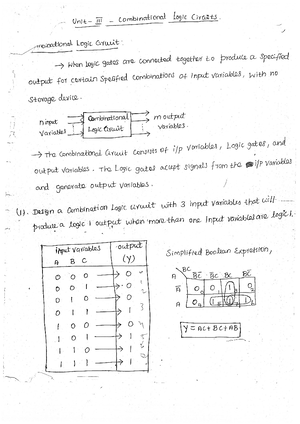 Unit - III - Combinational Logic Circuits.
Combinational Logic Circuit:
→ When logic gates are connected together to produce a specified
output for certain specified combinations of input variables, with no
storage device.
n input
variables
Combinational
Logic Circuit
m output
variables.
→ The Combinational Circuit consists of i/p variables, logic gates, and
output variables. The logic gates accept signals from the i/p variables
and generate output variables.
(1). Design a Combination Logic circuit with 3 input variables that will
produce a logic 1 output when more than one input variables are logic 1.
input variables output
A B C (Y)
0 0 0 → 0
0 0 1 → 0
0 1 0 → 0
0 1 1 → 1
1 0 0 → 0
1 0 1 → 1
1 1 0 → 1
1 1 1 → 1
Simplified Boolean Expression,
Y = AC + BC + AB